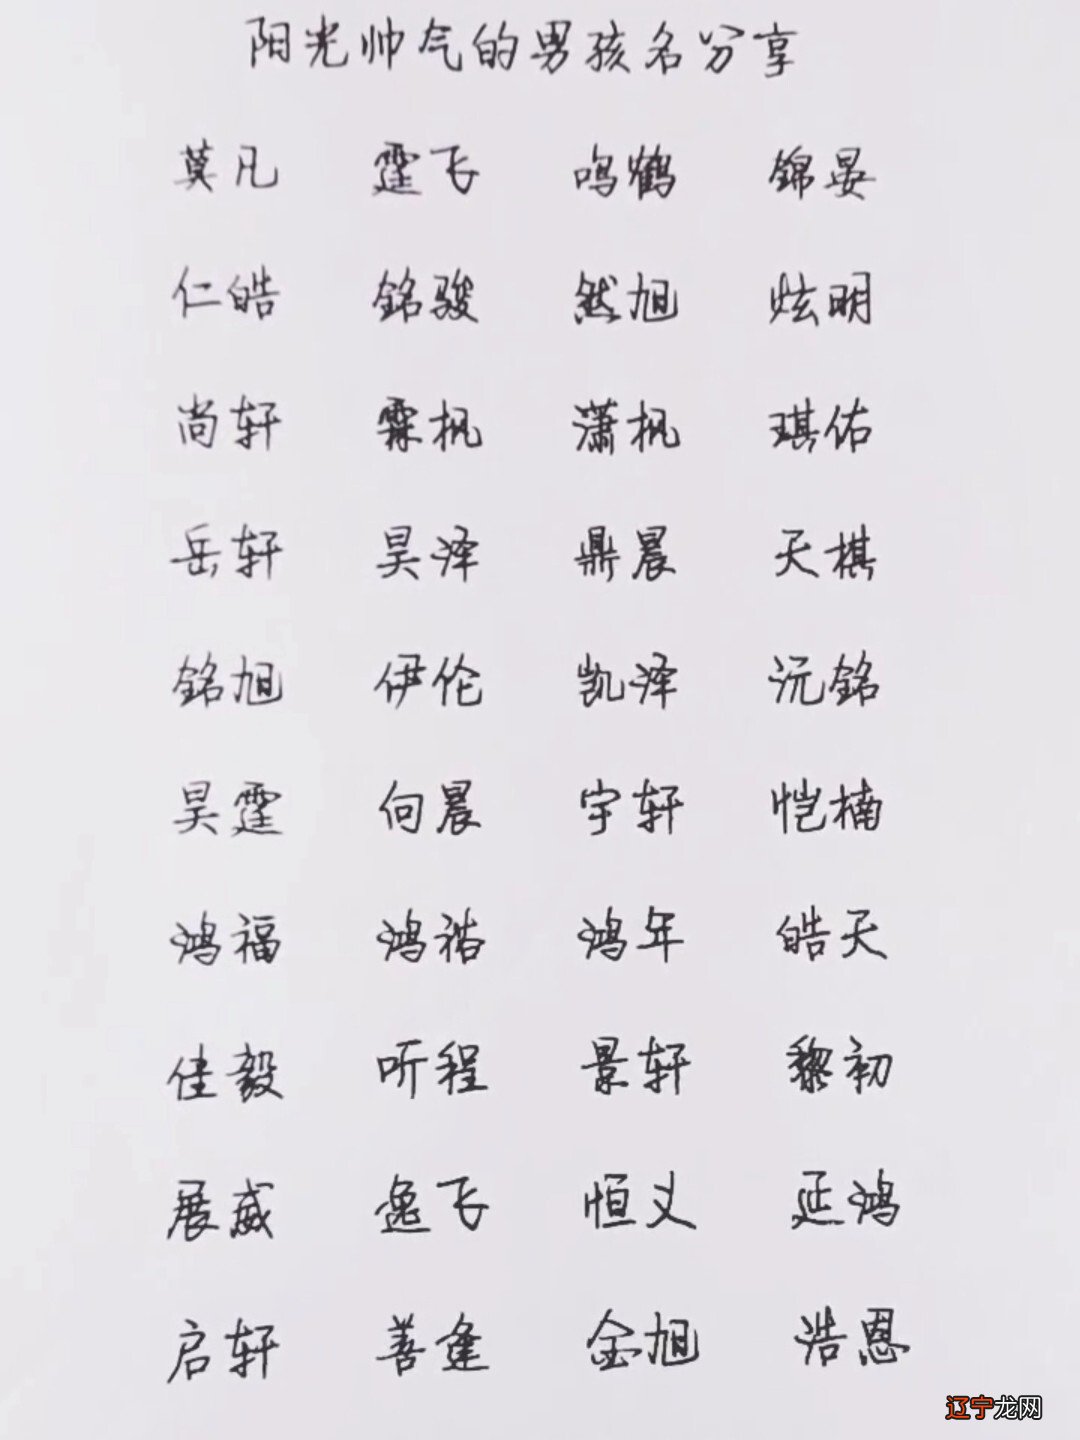 阳光帅气的男孩名分享
莫凡 霆飞 鸣鹤 锦晏
仁皓 铭骏 然旭 炫明
尚轩 霖枫 潇枫 琪佑
岳轩 昊泽 鼎晨 天棋
铭旭 伊伦 凯泽 沅铭
昊霆 向晨 宇轩 恺楠
鸿福 鸿祜 鸿年 皓天
佳毅 听程 景轩 黎初
展威 逸飞 恒义 延鸿
启轩 善逢 金旭 浩恩
辽宁龙网